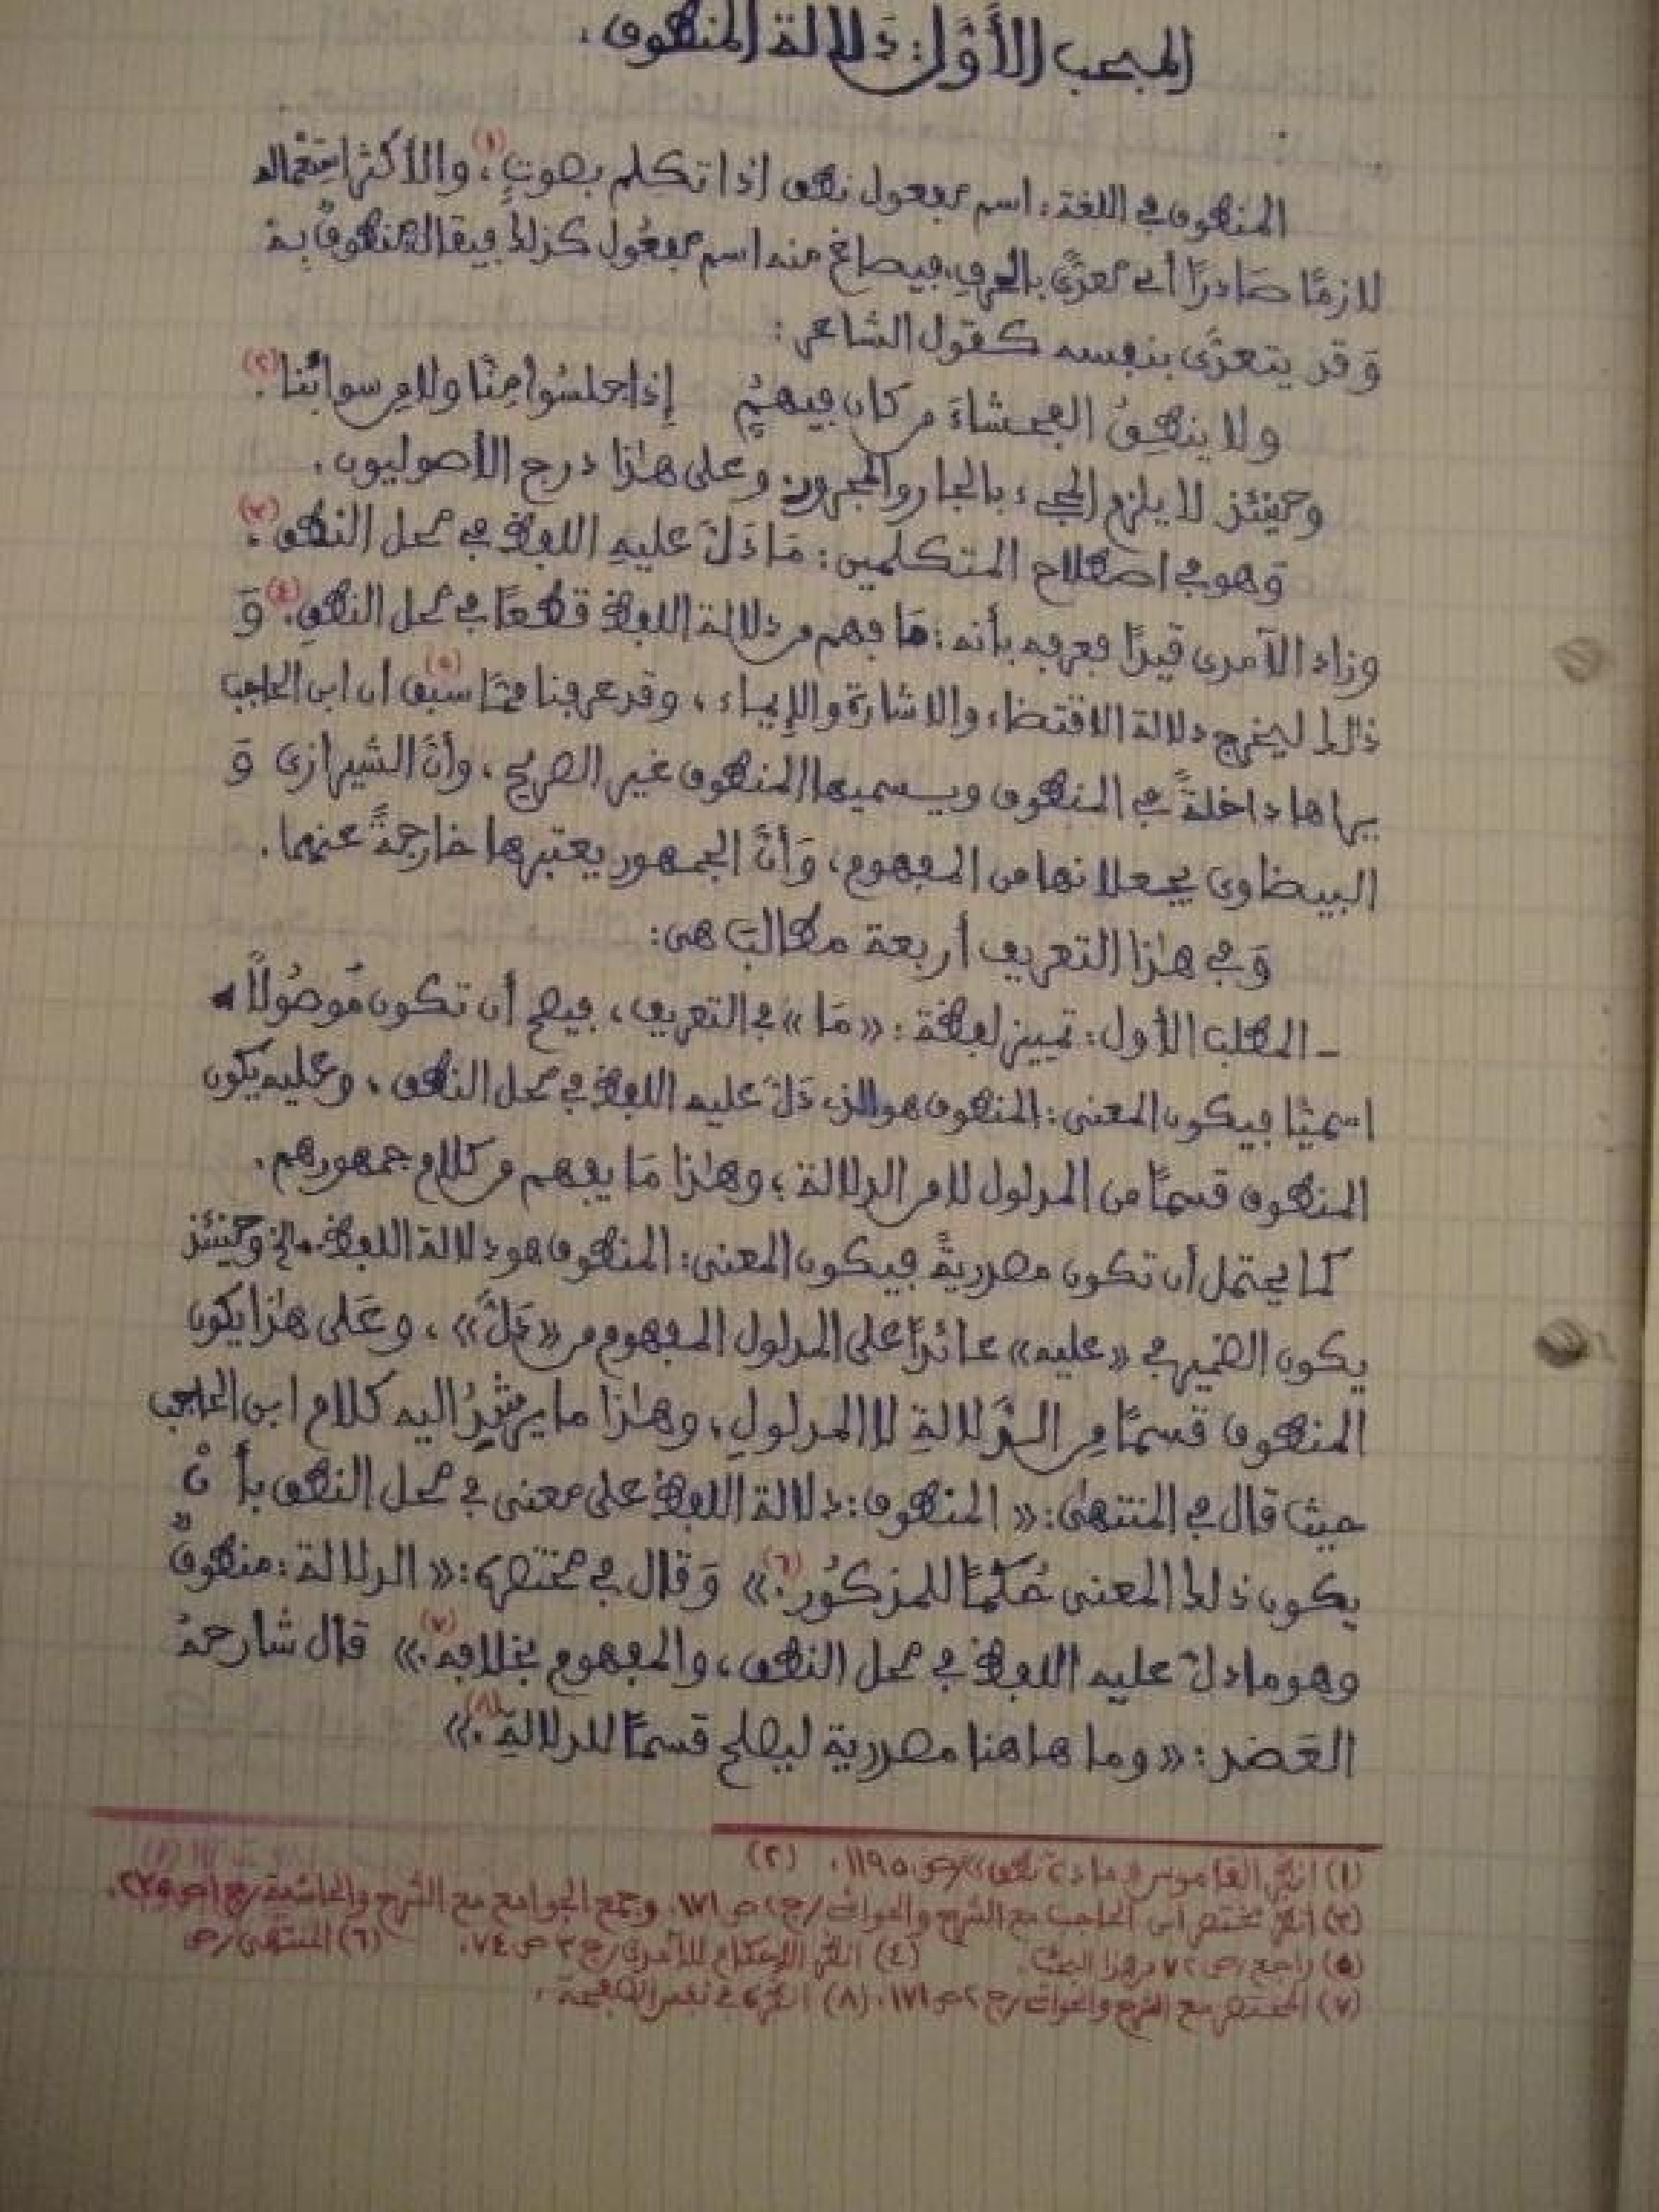 المبحث الأَوَّل: دَلالة المنطوق.
المنطوق في اللغة: اسم مفعول نطق إذا تكلم بصوتٍ(١)، والأكثر استعماله
لازمًا صَادرًا أي معدًّى بالحرفِ، فيصاغ منه اسم مفعُول كذلك فيقال: منطوقٌ به
وَقد يتعدَّى بنفسه كقول الشاعر:
ولا ينطِقُ الفحشاءَ من كان فيهمُ إذا جلسُوا مِنَّا ولا من سوائنا(٢).
وحينئذ لا يلزم المجيء بالجار والمجرور، وعلى هذا درج الأصوليون.
وَهو في اصطلاح المتكلمين: مَا دَلَّ عليهِ اللفظ في محل النطق(٣).
وزاد الآمدى قيدًا فعرفه بأنه: مَا فهم من دلالة اللفظ قطعًا في محل النطقِ(٤). وَ
ذلك ليخرج دلالة الاقتضاء والاشارة والإيماء، وقد عرفنا ممَّا سَبق(٥) أن ابن الحاجب
يراها داخلةً في المنطوق ويسميها المنطوق غير الصريح، وأنَّ الشيرازى وَ
البيضاوى يجعلانها من المفهوم، وَأنَّ الجمهور يعتبرها خارجةً عنهما.
وَفي هٰذا التعريف أربعة مطالبَ هى:
ـ المطلب الأول: تمييز لفظة: «مَا» في التعريف، فيصح أن تكون مَوصُولاً
اسميًّا فيكون المعنى: المنطوق هو الذي دَلَّ عليه اللفظ في محل النطق، وعليه يكون
المنطوق قسمًا من المدلول لا من الدلالة؛ وهٰذا مَا يفهم من كلام جمهورهم.
كما يحتمل أن تكون مصدريةً فيكون المعنى: المنطوق هو دلالة اللفظ.. الخ وحينئذ
يكون الضمير في «عليه» عائدًا على المدلول المفهوم من «دَلَّ»، وعَلى هٰذا يكون
المنطوق قسمًا مِن الدَّلالةِ لا المدلولِ، وهٰذا ما يشيرُ اليه كلام ابن الحاجب
حيث قال في المنتهىٰ: «المنطوق: دلالة اللفظ على معنى في محل النطق بأنْ
يكون ذلك المعنى حُكمًا للمذكُور(٦).» وَقال في مختصره: «الدلالة: منطوقٌ
وهو ما دلَّ عليه اللفظ في محل النطق، والمفهوم بخلافِه(٧).» قال شارحهُ
العَضد: «وما هاهنا مصدرية ليصلح قسمًا للدلالةِ(٨).»
(١) انظر القاموس مادة نطق /ص ١١٩٥. (٢)
(٣) انظر مختصر ابن الحاجب مع الشرح والحواشي /ج ٢ ص ١٧١. وجمع الجوامع مع الشرح والحاشية /ج ١ ص ٢٣٥.
(٥) راجع /ص ٧٢ من هذا البحث. (٤) انظر الإحكام للآمدى /ج ٣ ص ٧٤. (٦) المنتهى /ص
(٧) المختصر مع الشرح والحواشي /ج ٢ ص ١٧١. (٨) انظره في نفس الصفحة.